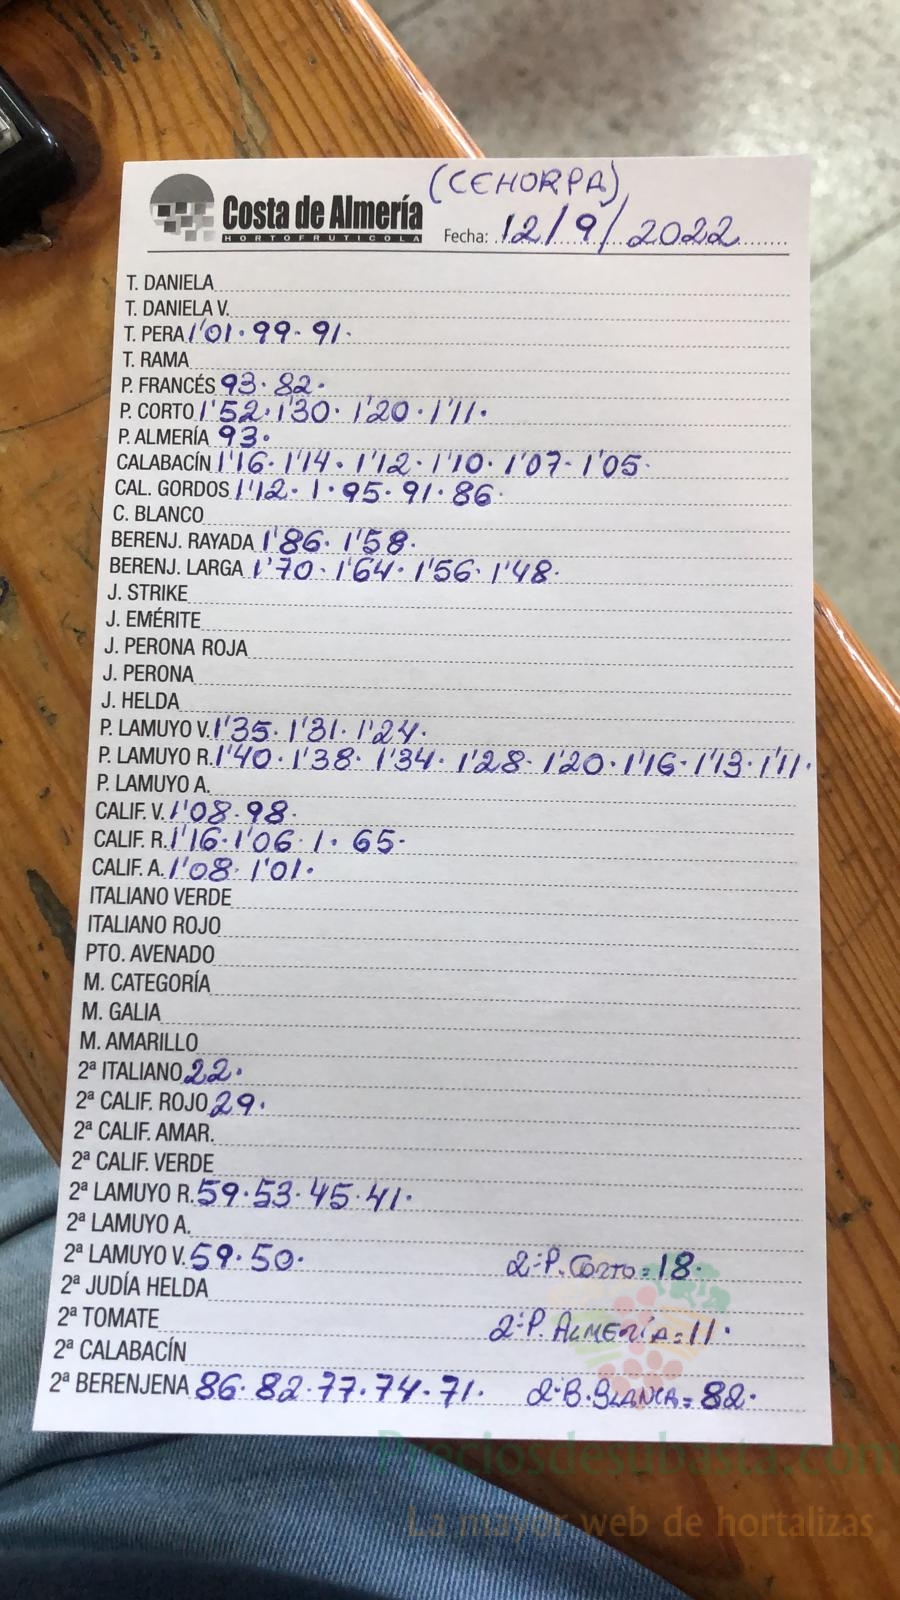 (CEHORPA)
Costa de Almería
HORTOFRUTICOLA
Fecha: 12/9/2022
T. DANIELA
T. DANIELA V.
T. PERA 1'01· 99· 91·
T. RAMA
P. FRANCÉS 93· 82·
P. CORTO 1'52· 1'30· 1'20· 1'11·
P. ALMERÍA 93·
CALABACÍN 1'16· 1'14· 1'12· 1'10· 1'07· 1'05·
CAL. GORDOS 1'12· 1· 95· 91· 86·
C. BLANCO
BERENJ. RAYADA 1'86· 1'58·
BERENJ. LARGA 1'70· 1'64· 1'56· 1'48·
J. STRIKE
J. EMÉRITE
J. PERONA ROJA
J. PERONA
J. HELDA
P. LAMUYO V. 1'35· 1'31· 1'24·
P. LAMUYO R. 1'40· 1'38· 1'34· 1'28· 1'20· 1'16· 1'13· 1'11·
P. LAMUYO A.
CALIF. V. 1'08· 98·
CALIF. R. 1'16· 1'06· 1· 65·
CALIF. A. 1'08· 1'01·
ITALIANO VERDE
ITALIANO ROJO
PTO. AVENADO
M. CATEGORÍA
M. GALIA
M. AMARILLO
2ª ITALIANO 22·
2ª CALIF. ROJO 29·
2ª CALIF. AMAR.
2ª CALIF. VERDE
2ª LAMUYO R. 59· 53· 45· 41·
2ª LAMUYO A.
2ª LAMUYO V. 59· 50· 2ª P. CORTO = 18·
2ª JUDÍA HELDA
2ª TOMATE 2ª P. ALMERÍA = 11·
2ª CALABACÍN
2ª BERENJENA 86· 82· 77· 74· 71· 2ª B. BLANCA = 82·
Preciosdesubasta.com
La mayor web de hortalizas